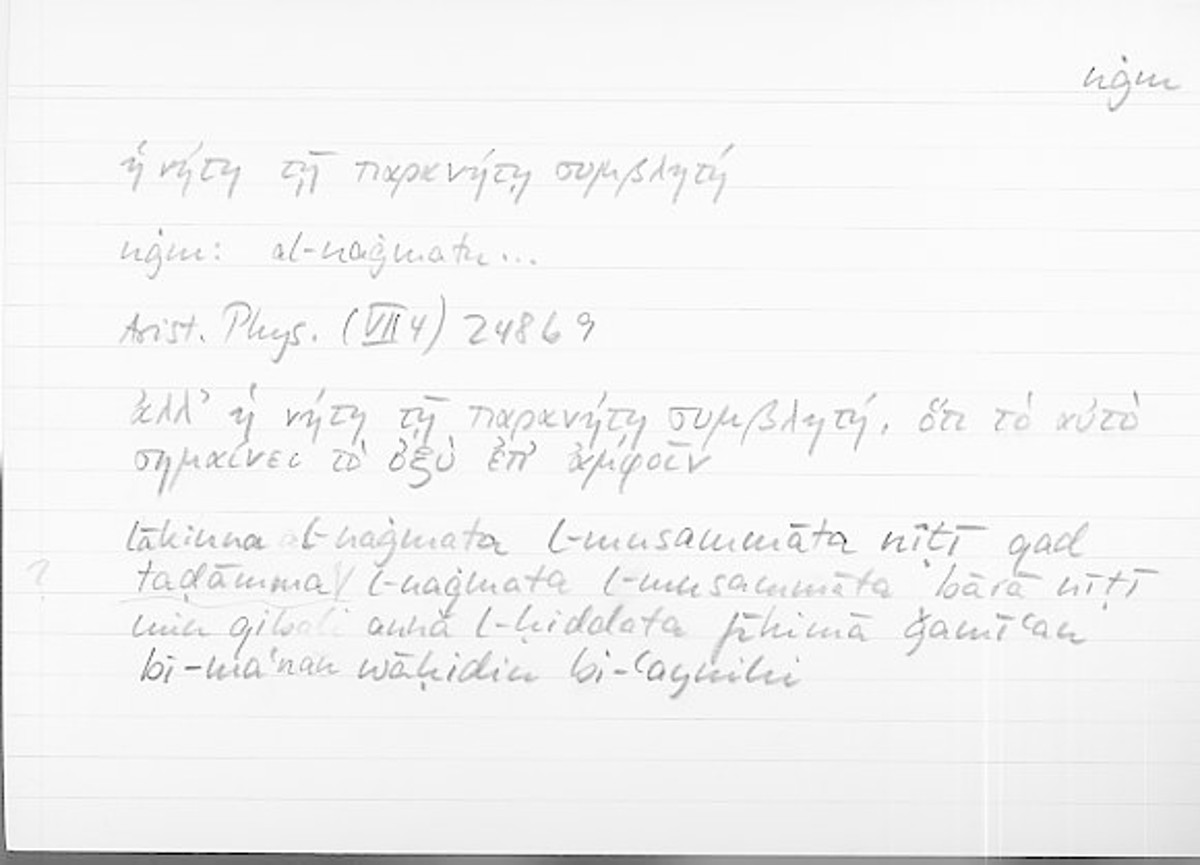 nġm
ἡ νήτη τῇ παρανήτῃ συμβλητή
nġm: al-naġmatu...
Arist. Phys. (VII 4) 248b9
ἀλλ' ἡ νήτη τῇ παρανήτῃ συμβλητή, ὅτι τὸ αὐτὸ
σημαίνει τὸ ὀξὺ ἐπ' ἀμφοῖν
lākinna l-naġmata l-musammāta nīṭī qad
? taḍāmma l-naġmata l-musammāta bārā nīṭī
min qibali anna l-ḥiddata fīhimā ǧamīʿan
bi-maʿnan wāḥidin bi-ʿaynihi